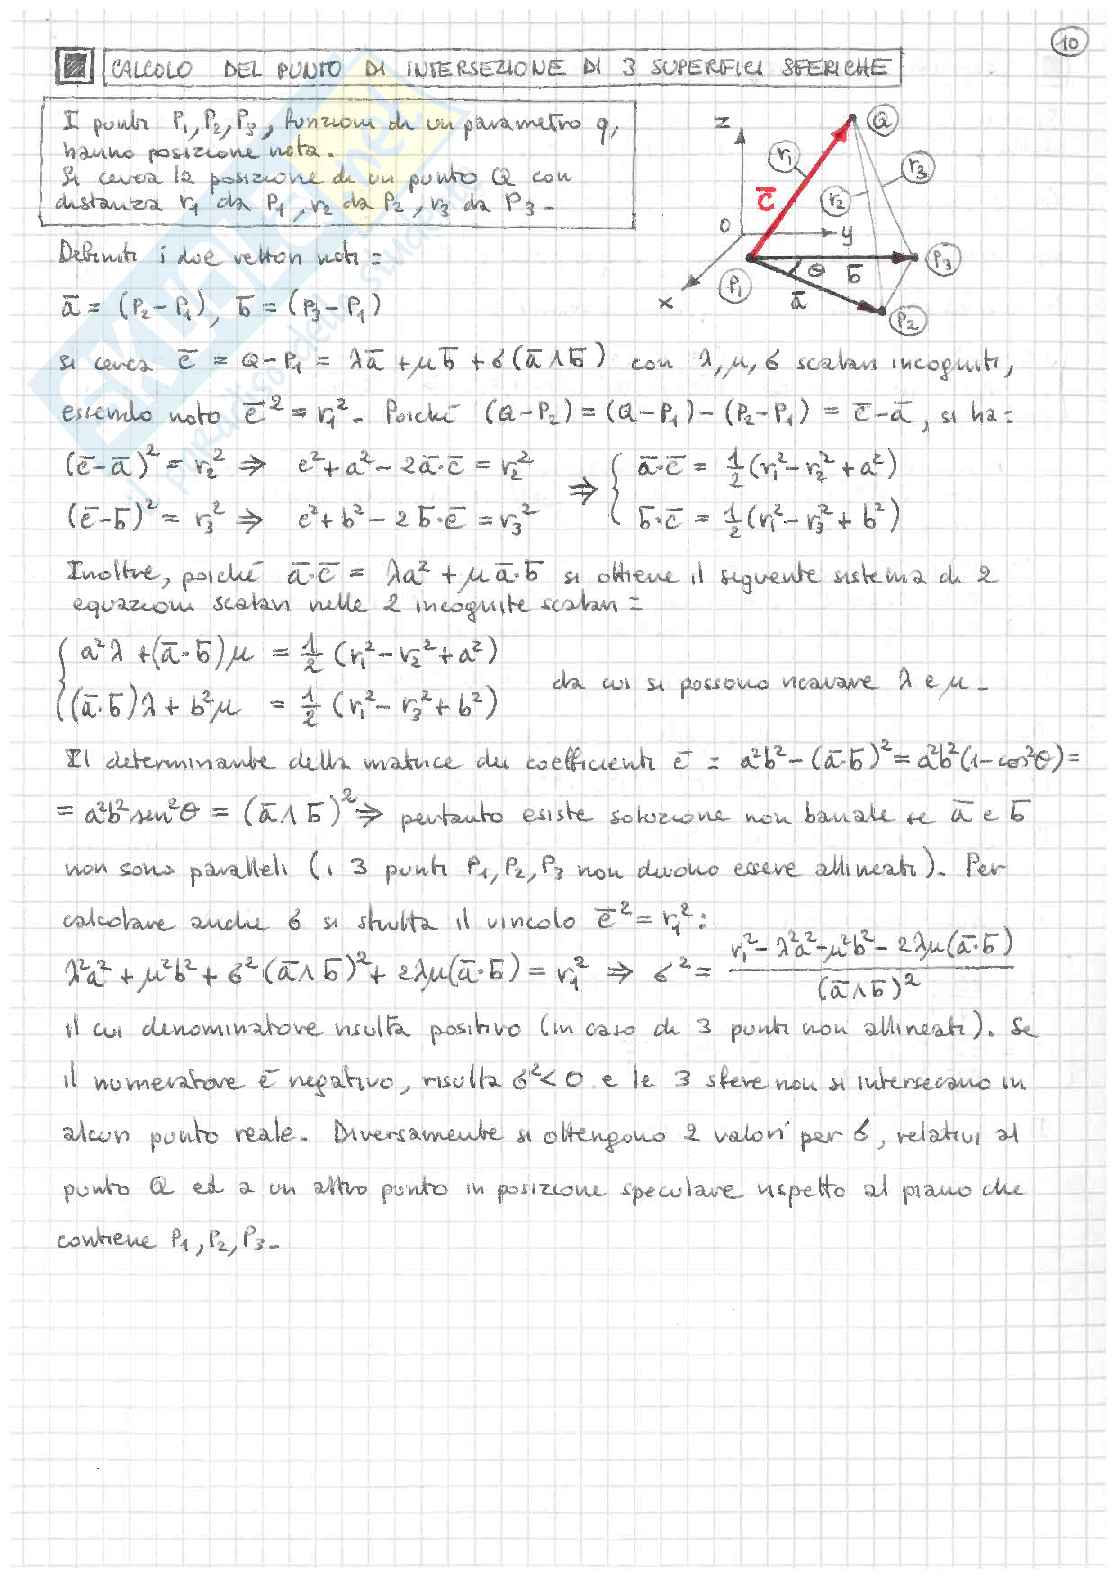 10
CALCOLO DEL PUNTO DI INTERSEZIONE DI 3 SUPERFICI SFERICHE
I punti P₁, P₂, P₃, funzioni di un parametro q,
hanno posizione nota.
Si cerca la posizione di un punto Q con
distanza r₁ da P₁, r₂ da P₂, r₃ da P₃.
z
Q
r₁
r₃
c̅
r₂
O
y
θ
b̅
P₃
x
P₁
a̅
P₂
Definiti i due vettori noti:
a̅ = (P₂-P₁), b̅ = (P₃-P₁)
si cerca c̅ = Q-P₁ = λa̅ + μb̅ + σ(a̅∧b̅) con λ, μ, σ scalari incogniti,
essendo noto c̅² = r₁². Poiché (Q-P₂) = (Q-P₁) - (P₂-P₁) = c̅-a̅, si ha:
(c̅-a̅)² = r₂² ⇒ c²+a²-2a̅·c̅ = r₂²
(c̅-b̅)² = r₃² ⇒ c²+b²-2b̅·c̅ = r₃²
⇒ { a̅·c̅ = 1/2 (r₁²-r₂²+a²)
b̅·c̅ = 1/2 (r₁²-r₃²+b²)
Inoltre, poiché a̅·c̅ = λa² + μ a̅·b̅ si ottiene il seguente sistema di 2
equazioni scalari nelle 2 incognite scalari:
{ a²λ + (a̅·b̅)μ = 1/2 (r₁²-r₂²+a²)
(a̅·b̅)λ + b²μ = 1/2 (r₁²-r₃²+b²)
da cui si possono ricavare λ e μ.
Il determinante della matrice dei coefficienti è = a²b²-(a̅·b̅)² = a²b²(1-cos²θ) =
= a²b²sen²θ = (a̅∧b̅)² ⇒ pertanto esiste soluzione non banale se a̅ e b̅
non sono paralleli (i 3 punti P₁, P₂, P₃ non devono essere allineati). Per
calcolare anche σ si sfrutta il vincolo c̅² = r₁²:
λ²a² + μ²b² + σ²(a̅∧b̅)² + 2λμ(a̅·b̅) = r₁² ⇒ σ² = (r₁²-λ²a²-μ²b²-2λμ(a̅·b̅))/(a̅∧b̅)²
il cui denominatore risulta positivo (in caso di 3 punti non allineati). Se
il numeratore è negativo, risulta σ²<0 e le 3 sfere non si intersecano in
alcun punto reale. Diversamente si ottengono 2 valori per σ, relativi al
punto Q ed a un altro punto in posizione speculare rispetto al piano che
contiene P₁, P₂, P₃.